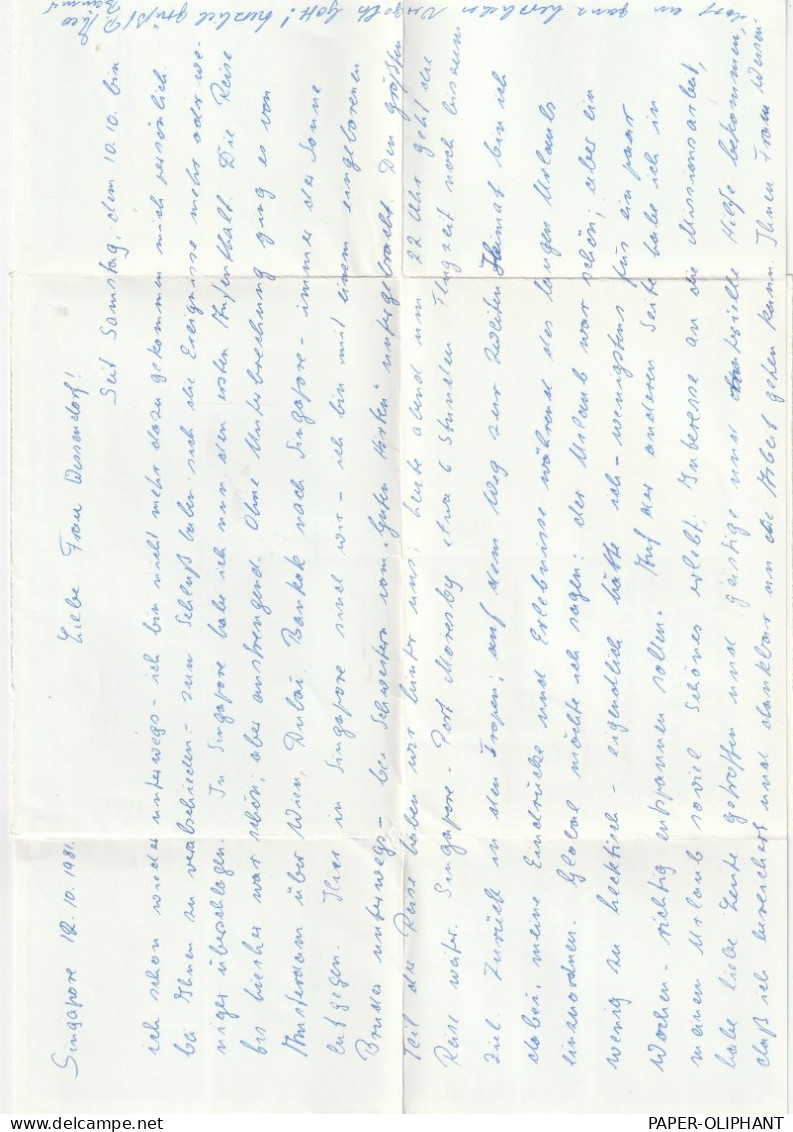 Singapore 12.10.1981.
Liebe Frau Wessendorf!
Seit Samstag, dem 10.10. bin
ich schon wieder unterwegs - ich bin nicht mehr dazu gekommen mich persönlich
bei Ihnen zu verabschieden - zum Schluß haben sich die Ereignisse mehr oder we-
niger überschlagen. In Singapore habe ich nun den ersten Aufenthalt. Die Reise
bis hierher war schön, aber anstrengend. Ohne Unterbrechung ging es von
Amsterdam über Wien, Dubai, Bankok nach Singapore - immer der Sonne
entgegen. Hier in Singapore sind wir - ich bin mit einem eingeborenen
Bruder unterwegs - bei Schwestern vom "Guten Hirten" untergebracht. Den größten
Teil der Reise haben wir hinter uns; heute abend um 22 Uhr geht die
Reise weiter. Singapore - Port Moresby etwa 6 Stunden Flugzeit noch bis zum
Ziel. Zurück in den Tropen; auf dem Weg zur zweiten Heimat bin ich
dabei, meine Eindrücke und Erlebnisse während des langen Urlaubs
einzuordnen. Global möchte ich sagen: der Urlaub war schön, aber ein
wenig zu hektisch - eigentlich hätte ich - wenigstens für ein paar
Wochen - richtig entspannen sollen. Auf der anderen Seite habe ich in
meinem Urlaub soviel Schönes erlebt; Interesse an die Missionsarbeit,
habe liebe Leute getroffen und geistige und materielle Hilfe bekommen,
daß ich bereichert und dankbar an die Arbeit gehen kann. Ihnen Frau Wessen-
dorf ein ganz herzlichen Vergelts Gott! herzlich grüßt P. Theo
PAPER-OLIPHANT